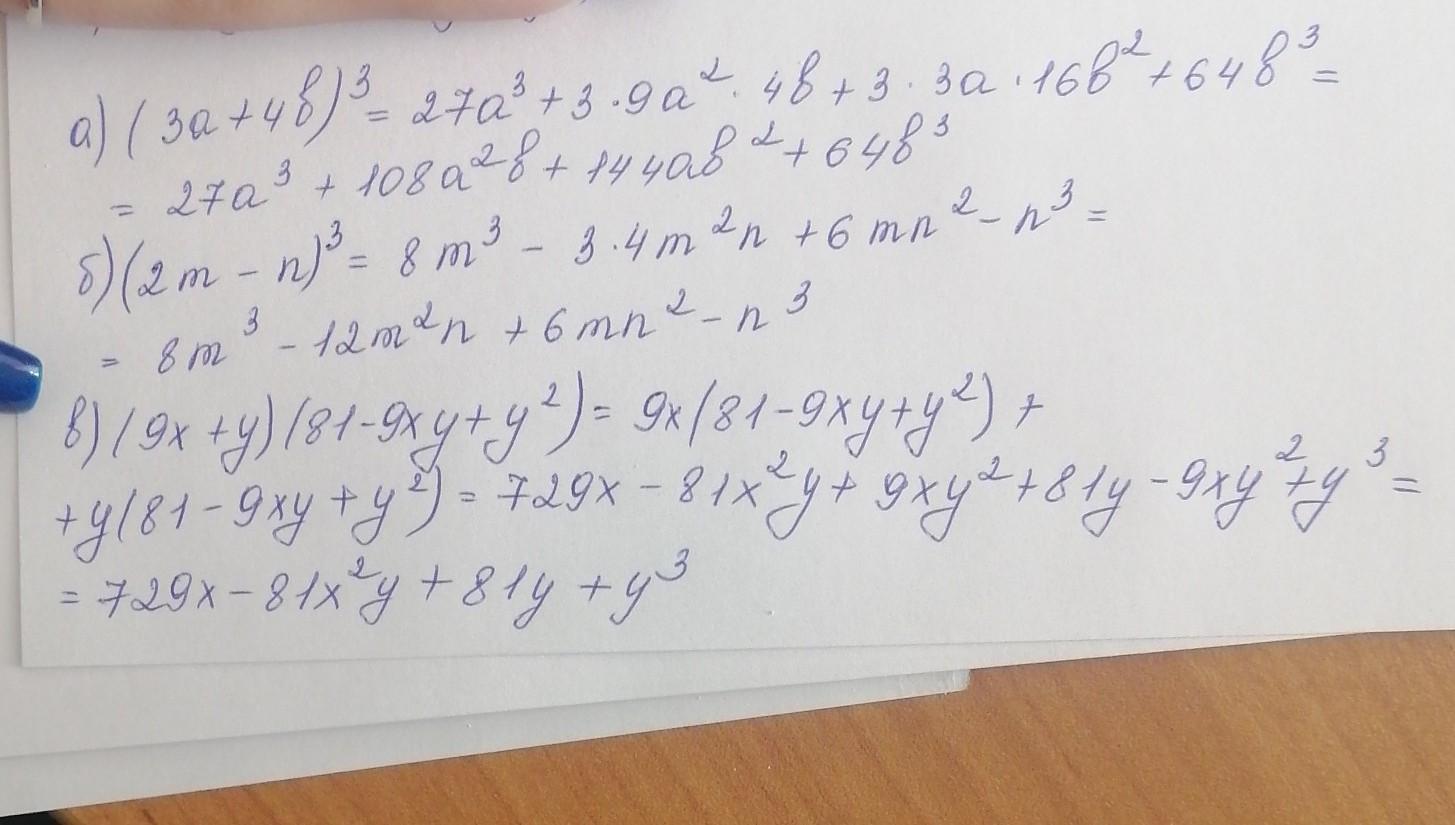 а) (3a+4b)³ = 27a³ + 3·9a²·4b + 3·3a·16b² + 64b³ =
= 27a³ + 108a²b + 144ab² + 64b³
б) (2m - n)³ = 8m³ - 3·4m²n + 6mn² - n³ =
= 8m³ - 12m²n + 6mn² - n³
в) (9x+y)(81-9xy+y²) = 9x(81-9xy+y²) +
+y(81-9xy+y²) = 729x - 81x²y + 9xy² + 81y - 9xy² + y³ =
= 729x - 81x²y + 81y + y³